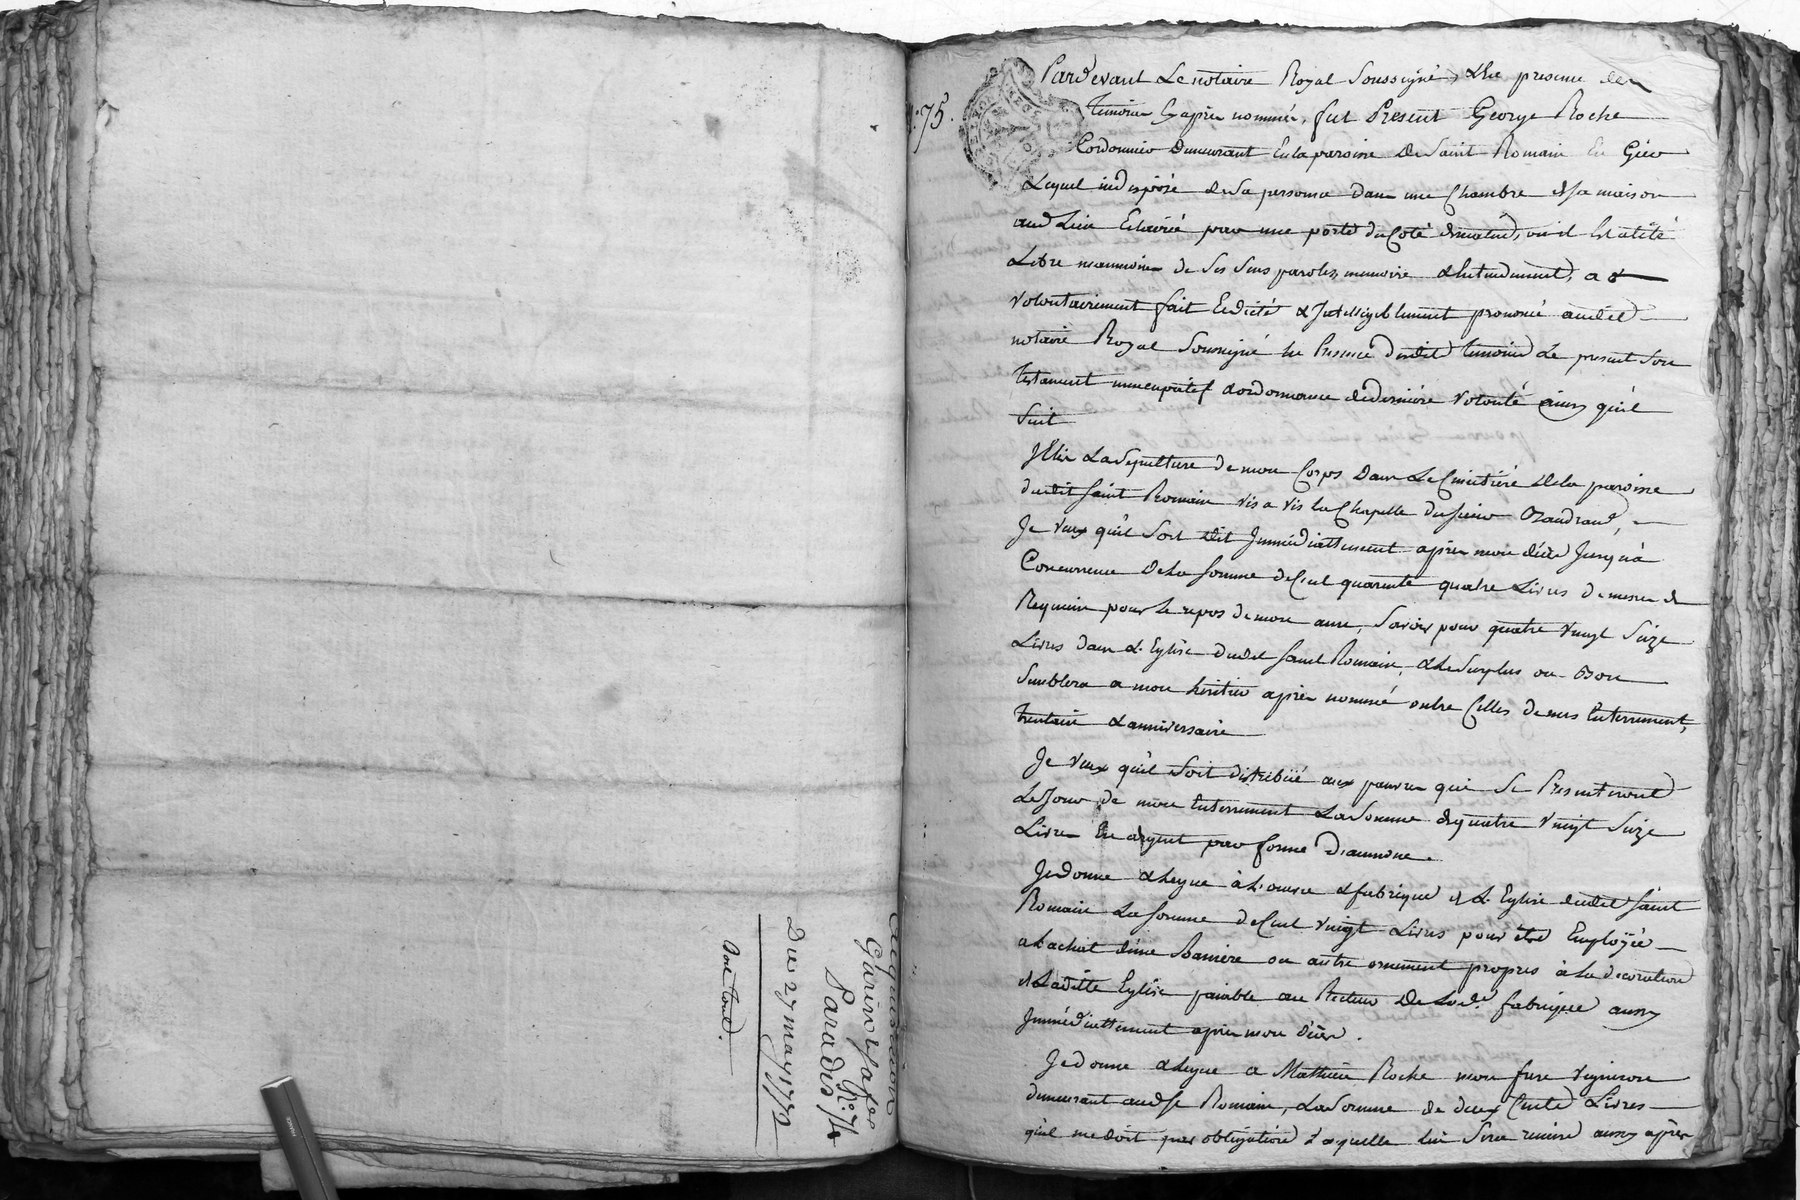 acquisition
Garin & Jafes
Paradis
N.° 74
Du 27 may 1772
Not tout.
N: 75.
Pardevant Le notaire Royal Soussigné, & En presence des
temoins Cy apres nommés, fut Present George Roche
Cordonnier Demeurant En la paroisse de Saint Romain En Gier
Lequel indisposé de Sa personne dans une Chambre de Sa maison
aud Lieu Eclairée par une porte du Coté de matin, où il Est alité
Libre neanmoins de Ses Sens parolle, memoire & Entendement, a
volontairement fait Et dicté & Intelligiblement prononcé audit
notaire Royal Soussigné En Presence desdits temoins Le present Son
testament nuncupatif & ordonnance de derniere Volonté ainsy qu'il
Suit
J'Elis La Sepulture de mon Corps dans Le Cimetière de la paroisse
dudit Saint Romain vis a vis la Chapelle du Sieur
Je Veux qu'il Soit dit Immédiattement après mon décès Jusqu'à
Concurrence de La Somme de Cent quarente quatre Livres de messes de
Requiem pour le repos de mon ame, Savoir pour quatre Vingt Seize
Livres dans L'Eglise dudit Saint Romain, & Le Surplus ou Bon
Semblera a mon héritier après nommé outre Celles de mes Enterrement,
trentain & anniversaire
Je Veux qu'il Soit distribüé aux pauvres qui Se Presenteront
Le Jour de mon Enterrement La Somme de quatre Vingt Seize
Livres En argent par forme d'aumone.
Je donne & Legue à L'œuvre & fabrique de L'Eglise dudit Saint
Romain La Somme de Cent Vingt Livres pour être Employée
a L'achat d'une Banière ou autre ornement propres à La decoration
de Laditte Eglise paiable au Recteur de Lad.e fabrique aussy
Immédiattement après mon décès.
Je donne & Legue a Mathieu Roche mon frere vigneron
demeurant aud St Romain, La Somme de deux Cents Livres
qu'il me doit par obligation Laquelle lui Sera remise aussy après